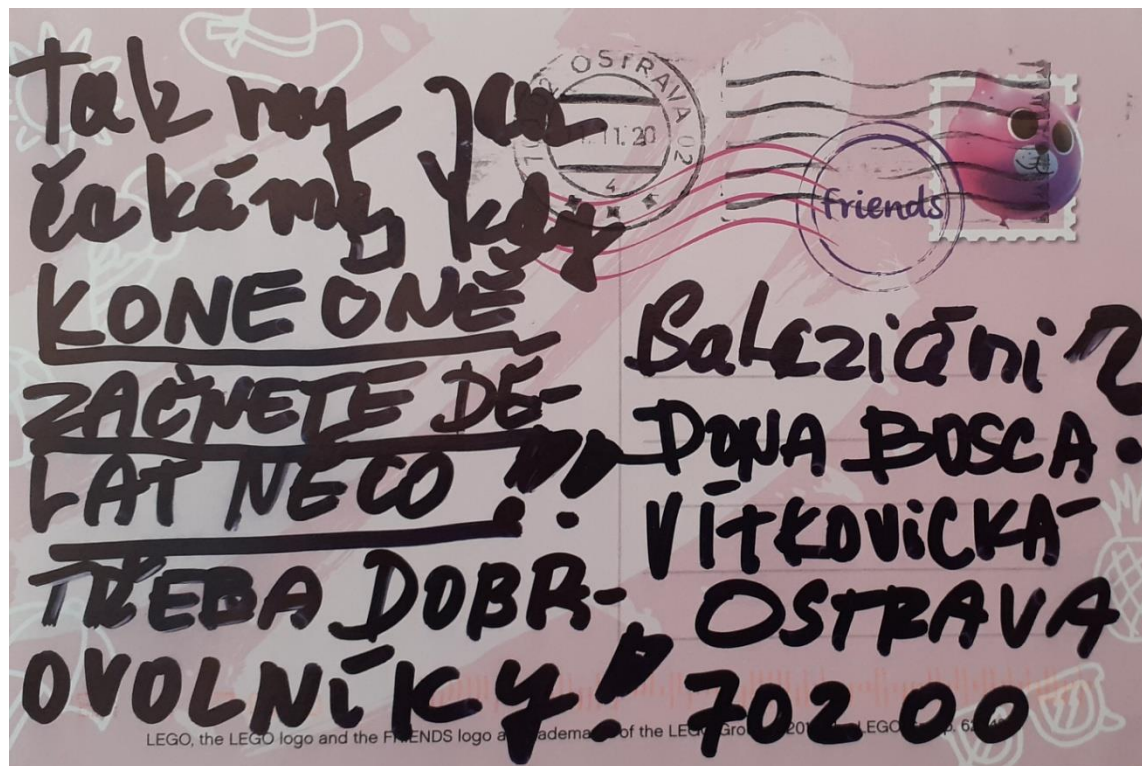 Tak my jen
čekámy kdy
KONEONĚ
ZAČNETE DĚ-
LAT NĚCO!!
TŘEBA DOBR-
OVOLNÍKY!!
OSTRAVA 02
11.11.20
4
friends
Saleziáni?
DONA BOSCA.
VÍTKOVICKÁ
OSTRAVA
702 00
LEGO, the LEGO logo and the FRIENDS logo are trademarks of the LEGO Group.